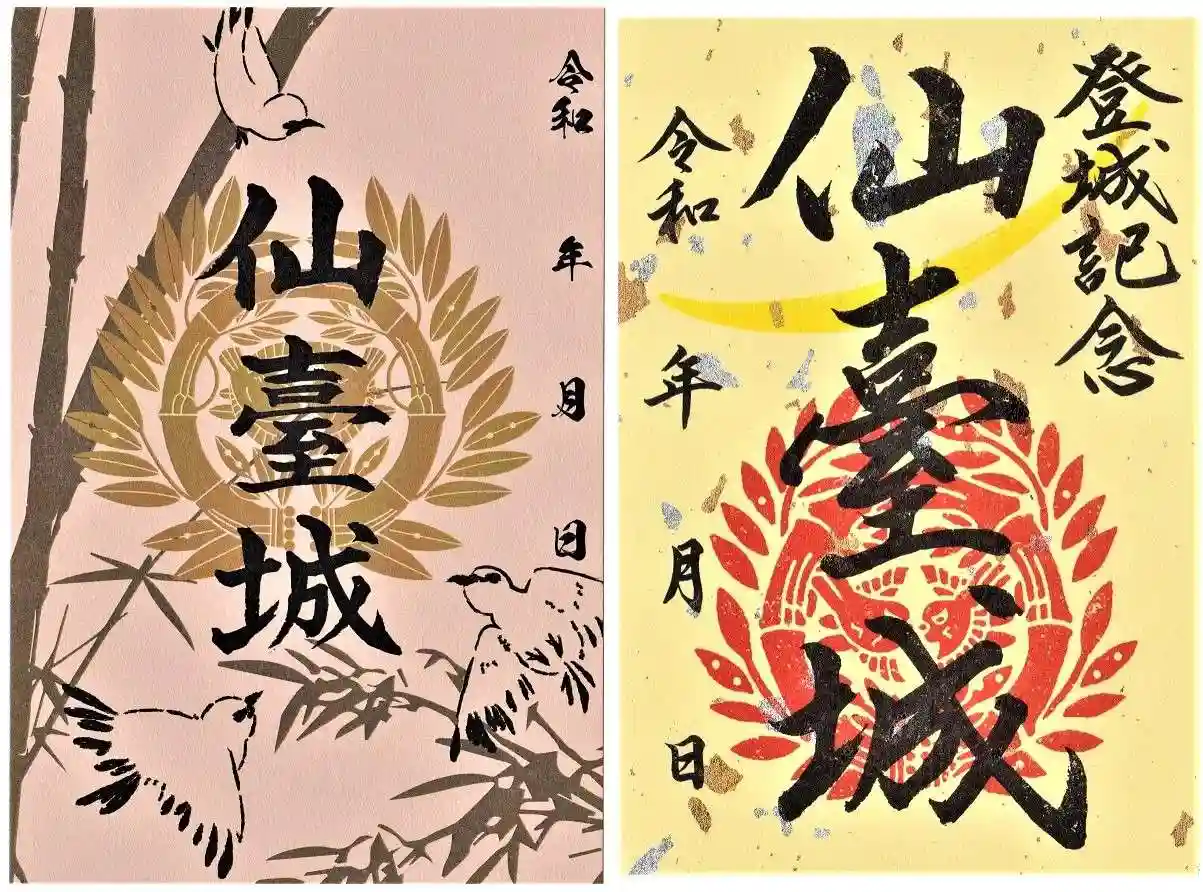 令和 年 月 日
仙臺城
登城記念
仙臺城
令和 年 月 日